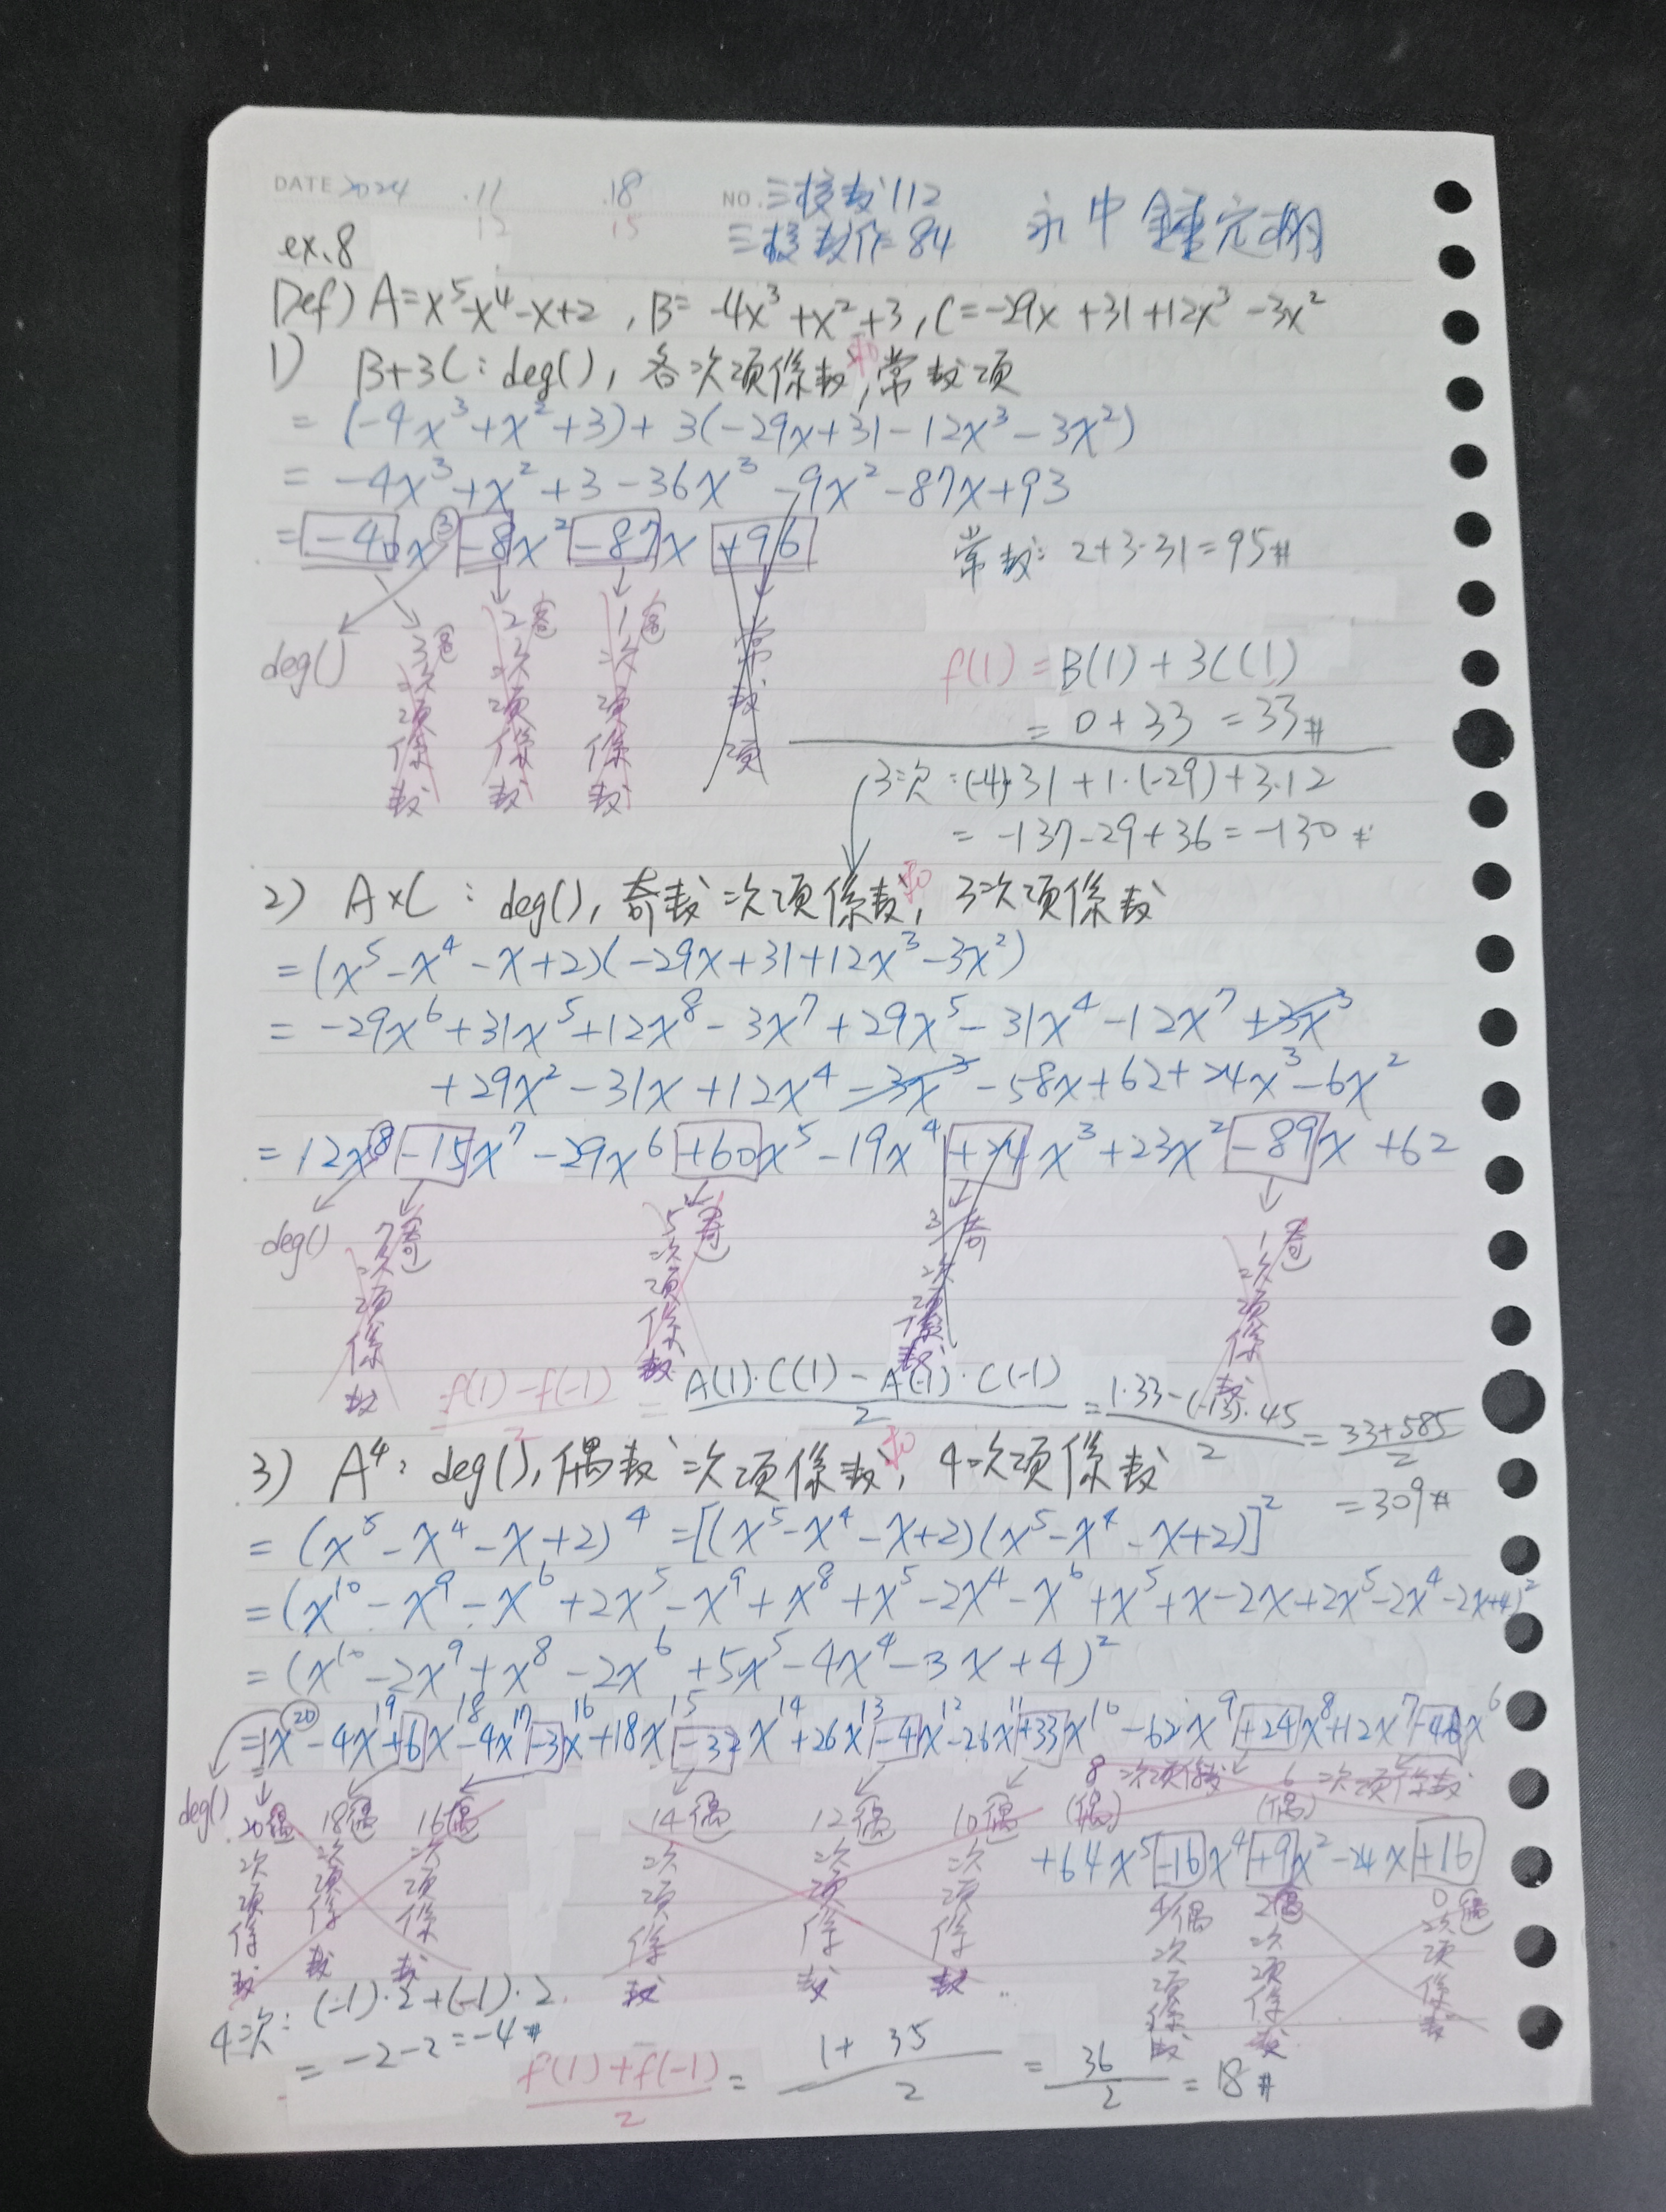 DATE 2024 .11 .18 NO. 三校教112
12 15 三校教作84 永中
ex.8
Def) A=x⁵-x⁴-x+2, B=-4x³+x²+3, C=-29x+31+12x³-3x²
1) B+3C: deg(), 各次項係數和, 常數項
=(-4x³+x²+3)+3(-29x+31-12x³-3x²)
=-4x³+x²+3-36x³-9x²-87x+93
=-40x³-8x²-87x+96
常數: 2+3·31=95#
deg()
3次項係數
2次項係數
1次項係數
常數項
f(1)=B(1)+3C(1)
=0+33=33#
3次:(-4)·31+1·(-29)+3·12
=-137-29+36=-130#
2) A×C: deg(), 奇數次項係數和, 3次項係數
=(x⁵-x⁴-x+2)(-29x+31+12x³-3x²)
=-29x⁶+31x⁵+12x⁸-3x⁷+29x⁵-31x⁴-12x⁷+3x³
+29x²-31x+12x⁴-3x³-58x+62+24x³-6x²
=12x⁸-15x⁷-29x⁶+60x⁵-19x⁴+24x³+23x²-89x+62
deg()
7次項係數 奇
5次項係數 奇
3次項係數 奇
1次項係數 奇
(f(1)-f(-1))/2=(A(1)·C(1)-A(-1)·C(-1))/2=(1·33-(-13)·45)/2=(33+585)/2
=309#
3) A⁴: deg(), 偶數次項係數和, 4次項係數
=(x⁵-x⁴-x+2)⁴=[(x⁵-x⁴-x+2)(x⁵-x⁴-x+2)]²
=(x¹⁰-x⁹-x⁶+2x⁵-x⁹+x⁸+x⁵-2x⁴-x⁶+x⁵+x-2x+2x⁵-2x⁴-2x+4)²
=(x¹⁰-2x⁹+x⁸-2x⁶+5x⁵-4x⁴-3x+4)²
=1x²⁰-4x¹⁹+6x¹⁸-4x¹⁷-3x¹⁶+18x¹⁵-32x¹⁴+26x¹³-4x¹²-26x¹¹+33x¹⁰-62x⁹+24x⁸+12x⁷-46x⁶
deg()
20偶次項係數
18偶次項係數
16偶次項係數
14偶次項係數
12偶次項係數
10偶次項係數
8次項係數 (偶)
6次項係數 (偶)
+64x⁵-16x⁴+9x²-24x+16
4偶次項係數
2偶次項係數
0偶次項係數
4次: (-1)·2+(-1)·2
=-2-2=-4#
(f(1)+f(-1))/2=(1+35)/2=36/2=18#